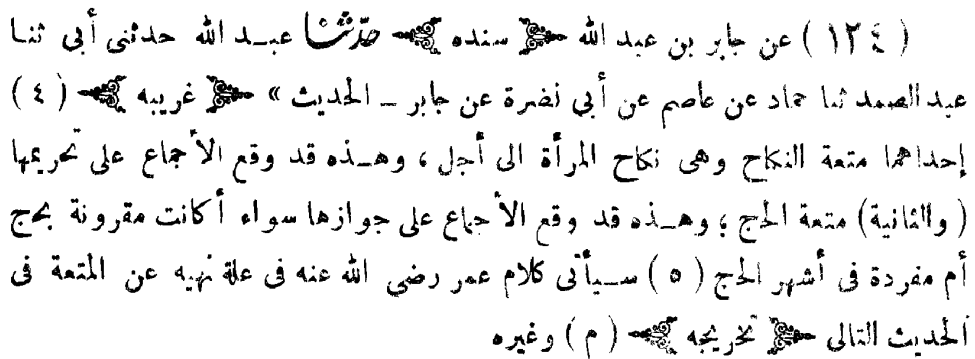 ( ١٢٤ ) عن جابر بن عبد الله ﴿ سنده ﴾ حدثنا عبد الله حدثنى أبى ثنا
عبد الصمد ثنا حماد عن عاصم عن أبى نضرة عن جابر – الحديث » ﴿ غريبه ﴾ ( ٤ )
إحداهما متعة النكاح وهى نكاح المرأة الى أجل ، وهذه قد وقع الأجماع على تحريمها
( والثانية) متعة الحج ؛ وهذه قد وقع الأجماع على جوازها سواء أكانت مقرونة بحج
أم مفردة فى أشهر الحج ( ٥ ) سيأتى كلام عمر رضى الله عنه فى علة نهيه عن المتعة فى
الحديث التالى ﴿ تخريجه ﴾ ( م ) وغيره